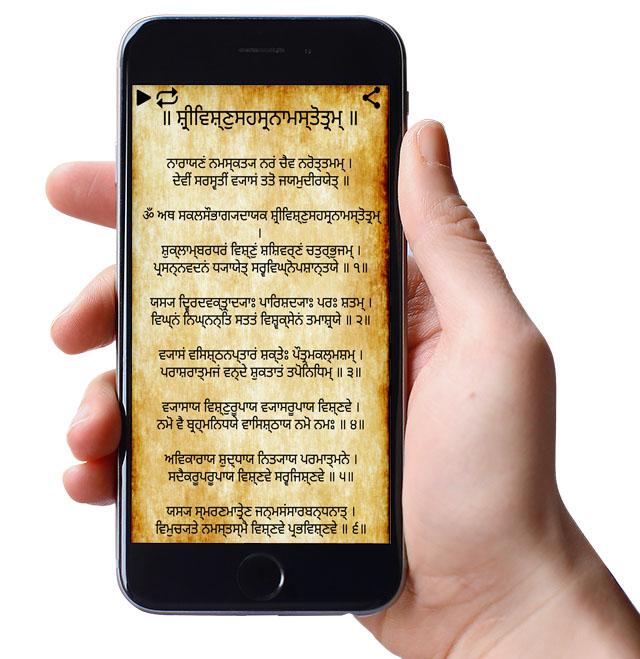 ॥ ਸ਼੍ਰੀਵਿਸ਼੍ਣੁਸਹਸ੍ਰਨਾਮਸ੍ਤੋਤ੍ਰਮ੍ ॥
ਨਾਰਾਯਣੰ ਨਮਸ੍ਕ੍ਰੁਤ੍ਯ ਨਰੰ ਚੈਵ ਨਰੋੱਤਮਮ੍ ।
ਦੇਵੀਂ ਸਰਸ੍ਵਤੀਂ ਵ੍ਯਾਸੰ ਤਤੋ ਜਯਮੁਦੀਰਯੇਤ੍ ॥
ੴ ਅਥ ਸਕਲਸੌਭਾਗ੍ਯਦਾਯਕ ਸ਼੍ਰੀਵਿਸ਼੍ਣੁਸਹਸ੍ਰਨਾਮਸ੍ਤੋਤ੍ਰਮ੍
।
ਸ਼ੁਕ੍ਲਾਮ੍ਬਰਧਰੰ ਵਿਸ਼੍ਣੁੰ ਸ਼ਸ਼ਿਵਰ੍ਣੰ ਚਤੁਰ੍ਭੁਜਮ੍ ।
ਪ੍ਰਸਨ੍ਨਵਦਨੰ ਧ੍ਯਾਯੇਤ੍ ਸਰ੍ਵਵਿਘ੍ਨੋਪਸ਼ਾਨ੍ਤਯੇ ॥ ੧॥
ਯਸ੍ਯ ਦ੍ਵਿਰਦਵਕ੍ਤ੍ਰਾਦ੍ਯਾਃ ਪਾਰਿਸ਼ਦ੍ਯਾਃ ਪਰਃ ਸ਼ਤਮ੍ ।
ਵਿਘ੍ਨੰ ਨਿਘ੍ਨਨ੍ਤਿ ਸਤਤੰ ਵਿਸ਼੍ਵਕ੍ਸੇਨੰ ਤਮਾਸ਼੍ਰਯੇ ॥ ੨॥
ਵ੍ਯਾਸੰ ਵਸਿਸ਼੍ਠਨਪ੍ਤਾਰੰ ਸ਼ਕ੍ਤੇਃ ਪੌਤ੍ਰਮਕਲ੍ਮਸ਼ਮ੍ ।
ਪਰਾਸ਼ਰਾਤ੍ਮਜੰ ਵਨ੍ਦੇ ਸ਼ੁਕਤਾਤੰ ਤਪੋਨਿਧਿਮ੍ ॥ ੩॥
ਵ੍ਯਾਸਾਯ ਵਿਸ਼੍ਣੁਰੂਪਾਯ ਵ੍ਯਾਸਰੂਪਾਯ ਵਿਸ਼੍ਣਵੇ ।
ਨਮੋ ਵੈ ਬ੍ਰਹ੍ਮਨਿਧਯੇ ਵਾਸਿਸ਼੍ਠਾਯ ਨਮੋ ਨਮਃ ॥ ੪॥
ਅਵਿਕਾਰਾਯ ਸ਼ੁਦ੍ਧਾਯ ਨਿਤ੍ਯਾਯ ਪਰਮਾਤ੍ਮਨੇ ।
ਸਦੈਕਰੂਪਰੂਪਾਯ ਵਿਸ਼੍ਣਵੇ ਸਰ੍ਵਜਿਸ਼੍ਣਵੇ ॥ ੫॥
ਯਸ੍ਯ ਸ੍ਮਰਣਮਾਤ੍ਰੇਣ ਜਨ੍ਮਸੰਸਾਰਬਨ੍ਧਨਾਤ੍ ।
ਵਿਮੁਚ੍ਯਤੇ ਨਮਸ੍ਤਸ੍ਮੈ ਵਿਸ਼੍ਣਵੇ ਪ੍ਰਭਵਿਸ਼੍ਣਵੇ ॥ ੬॥